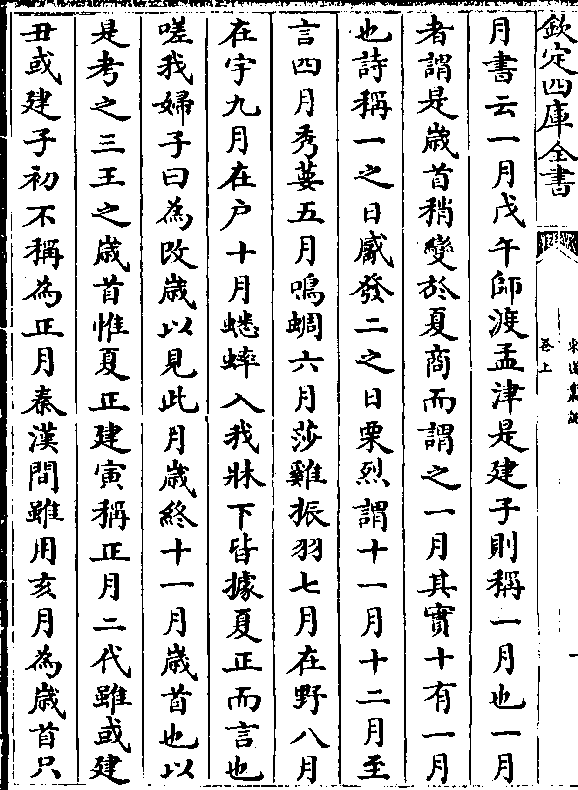 欽定四庫全書
卷上
月書云一月戊午師渡孟津是建子則稱一月也一月
者謂是歲首稍變於夏商而謂之一月其實十有一月
也詩稱一之日觱發二之日栗烈謂十一月十二月至
言四月秀葽五月鳴蜩六月莎雞振羽七月在野八月
在宇九月在户十月蟋蟀入我牀下皆據夏正而言也
嗟我婦子曰為改歲以見此月歲終十一月歲首也以
是考之三王之歲首惟夏正建寅稱正月二代雖或建
丑或建子初不稱為正月秦漢間雖用亥月為歲首只